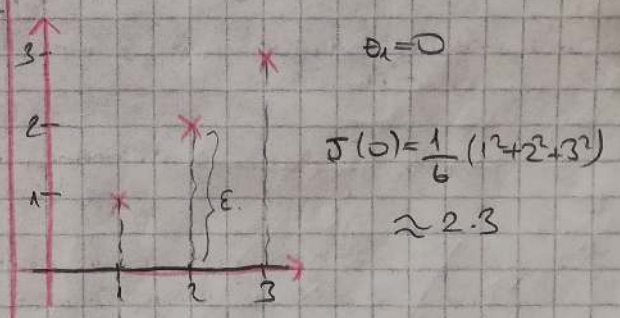 3
2
1
ε.
1 2 3
θ₁=0
J(0)=1/6 (1²+2²+3²)
≈2.3